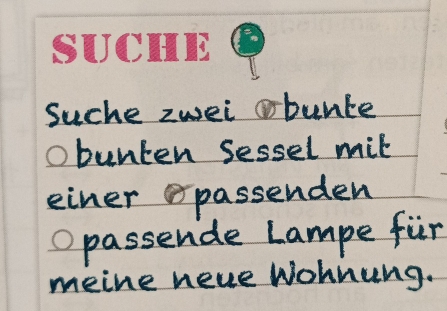 SUCHE
Suche zwei bunte
bunten Sessel mit
einer passenden
passende Lampe für
meine neue Wohnung.